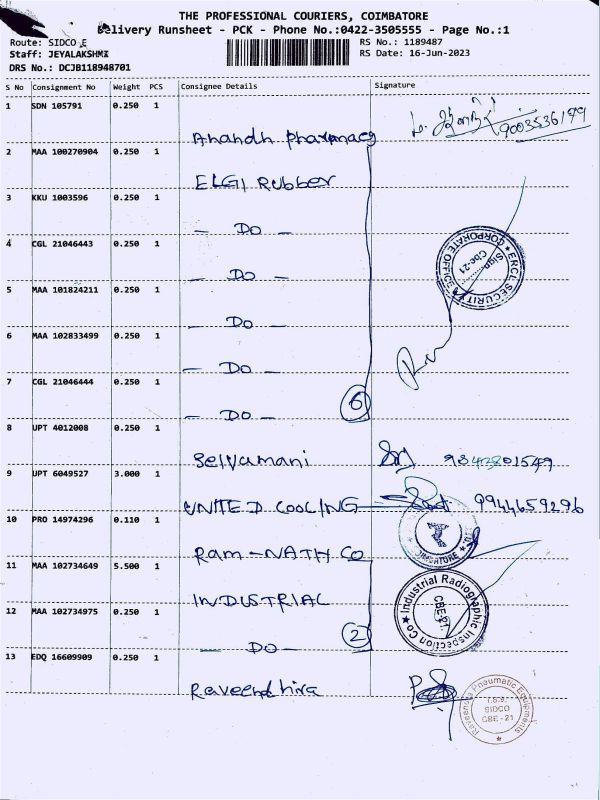 THE PROFESSIONAL COURIERS, COIMBATORE
Delivery Runsheet - PCK - Phone No.:0422-3505555 - Page No.:1
Route: SIDCO E
Staff: JEYALAKSHMI
DRS No.: DCJB118948701
RS No.: 1189487
RS Date: 16-Jun-2023
S No Consignment No Weight PCS Consignee Details Signature
1 SDN 105791 0.250 1
Anandh pharmacy 9003536199
2 MAA 100270904 0.250 1
ELGI Rubber
3 KKU 1003596 0.250 1
- Do -
4 CGL 21046443 0.250 1
- Do -
5 MAA 101824211 0.250 1
- Do -
6 MAA 102833499 0.250 1
- Do -
7 CGL 21046444 0.250 1
- Do - 6
ERCL SECURITY
CORPORATE OFFICE
Sign
Cbe-21
8 UPT 4012008 0.250 1
Selvamani
9 UPT 6049527 3.000 1
UNITED COOLING 9944659296
10 PRO 14974296 0.110 1
Ram-NATH CO
11 MAA 102734649 5.500 1
INDUSTRIAL
12 MAA 102734975 0.250 1
- Do - 2
Industrial Radiographic Inspection Co
CBE-21
13 EDQ 16609909 0.250 1
Raveendhira
Raveendra Pneumatic Equipments
SIDCO
CBE-21